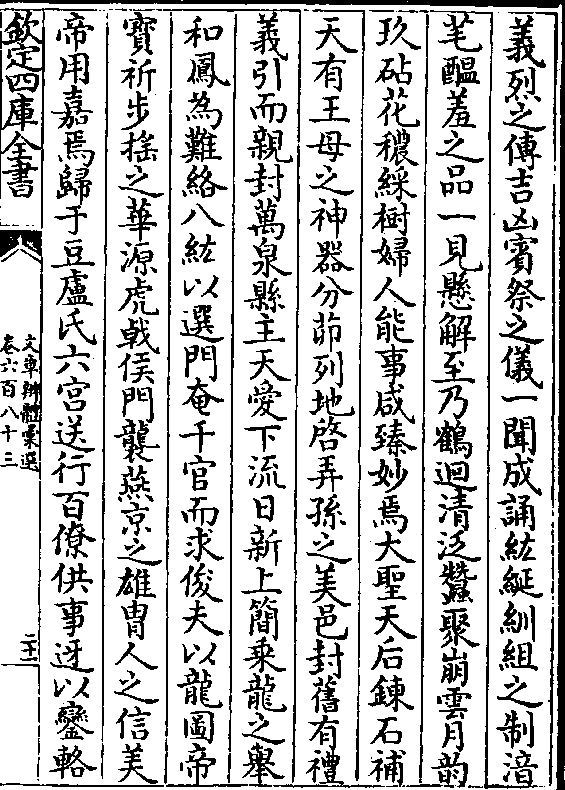 義烈之傳吉凶賓祭之儀一聞成誦紘綖紃組之制湆
芼醖羞之品一見懸解至乃鶴迴清泛蠶聚崩雲月韵
玖砧花穠綵樹婦人能事咸臻妙焉大聖天后鍊石補
天有王母之神器分茆列地啓弄孫之美邑封舊有禮
義引而親封萬泉縣主天愛下流日新上簡乗龍之舉
和鳳為難絡八紘以選門奄千官而求俊夫以龍圖帝
寳祈步揺之華源虎㦸侯門襲燕京之雄胄人之信美
帝用嘉焉歸于豆盧氏六宫送行百僚供事迓以鑾輅
欽定四庫全書
文章辨體彙選
卷六百八十三
二十一